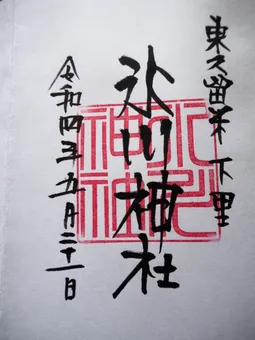 東久留米 下里
氷川神社
氷川
神社
令和四年五月二十一日